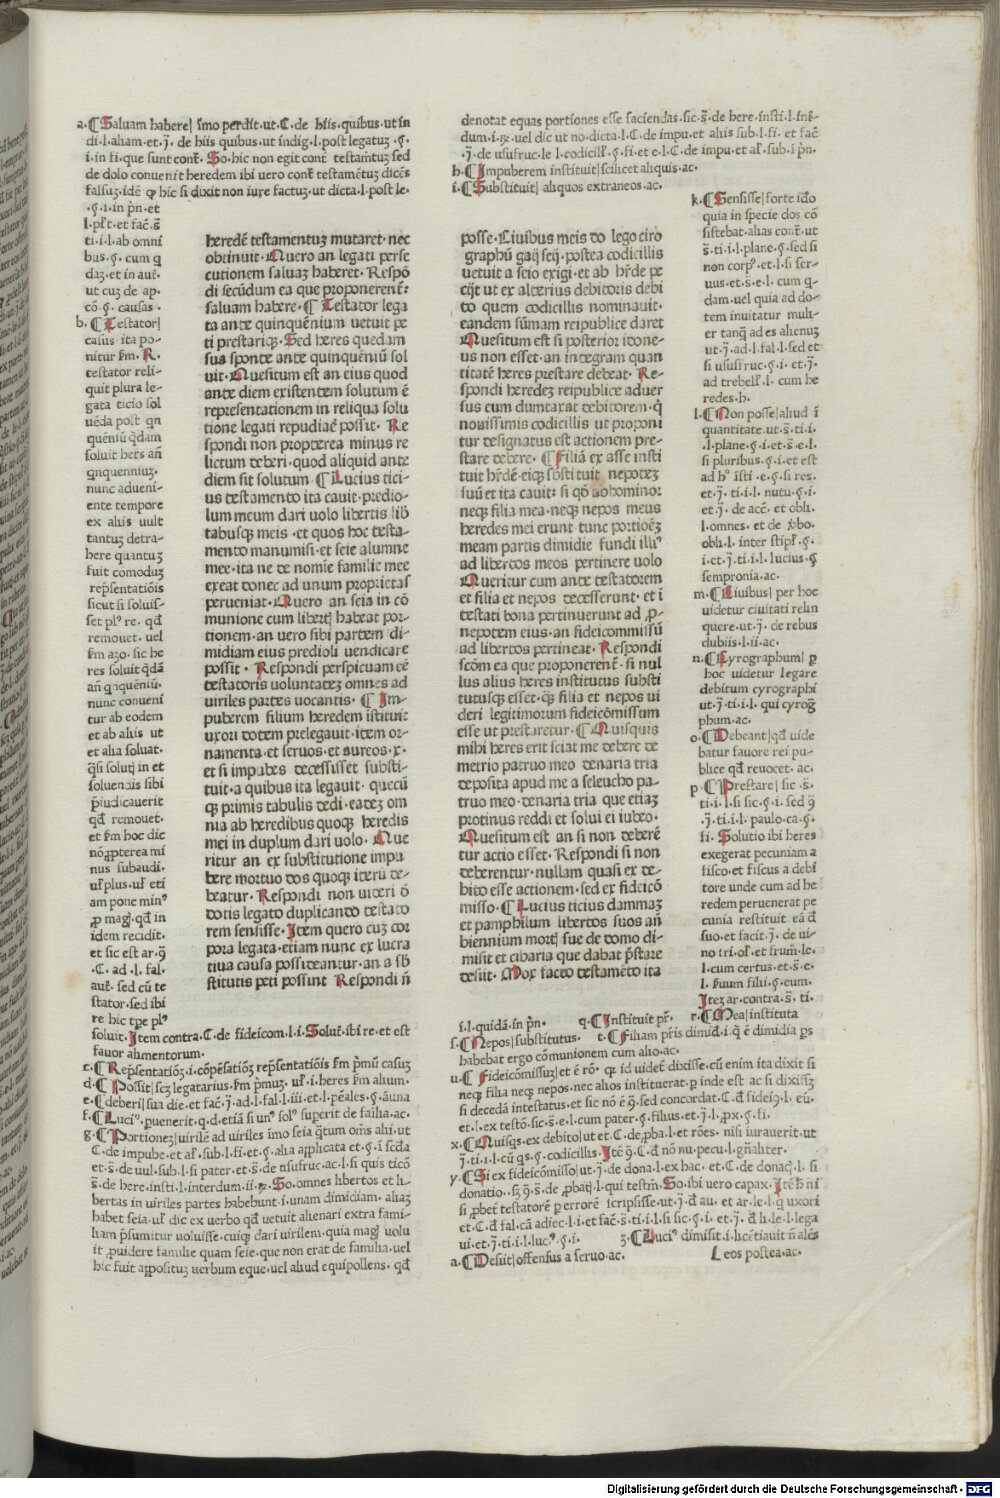 a·¶Saluam habere| īmo perdit·ut·C·de hiis·quibus·ut in
di·l·aliam·et·j̄·de hiis quibus·ut indig·l·post legatuȝ·§·
i·in fi·que sunt cont̄·So·hic non egit cont̄ testam̄tuȝ sed
de dolo convenit heredem ibi uero cont̄ testam̄tuȝ dicēs
falsuȝ·idē ꝙ hic si dixit non iure factuȝ·ut dicta·l·post le·
·§·i·in p̄n·et
ti·i·l·ab omni
bus·§·cum q
daȝ·et in aut̄·
ut cuȝ de ap·
cō·§·causas·
b·¶Testator|
caius ita po-
nitur s̄m·R·
testator reli-
quit plura le-
gata ticio sol
uēda post qn
quēniū q̄dam
soluit hers añ
qnquenniuȝ·
nunc adueni-
ente tempore
ex aliis uult
tantuȝ detra-
here quantuȝ
fuit comoduȝ
rep̄sentatiōis
sicut si soluis-
set plꝰ re·qđ
remouet·uel
s̄m aȝo·sic he
res soluit q̄dā
añ qnquēniū·
nunc conueni
tur ab eodem
et ab aliis ut
et alia soluat·
q̄si solutȷ in et
soluendis sibi
p̄iudicauerit
qđ remouet·
et s̄m hoc dic
nō ꝓpterea mi
nus subaudi·
ul̄ plus·ul̄ eti
am pone minꝰ
ꝓ magl̄·qđ in
idem recidit·
et sic est ar·ꝯ̄
·C·ad·l·fal·
aut̄·sed cū te
stator·sed ibi
re hic tp̄e plꝰ
soluit·Item contra·C·de fideicom·l·i·Solut̄·ibi re·et est
fauor alimentorum·
c·¶Rep̄sentatiōȝ·i·cōpēsatiōȝ rep̄sentatiōis s̄m p̄mū casuȝ
d·¶Possit|scȝ legatarius·s̄m p̄muȝ·ul̄·i·heres s̄m alium·
e·¶deberi|sua die·et fac̄·j̄·ad·l·fal·l·iii·et·l·pēales·§·āuna
f·¶Luciꝰ·puenerit·q·d·etiā si unꝰ solꝰ supērit de failia·ac·
g·¶Portioneȝ|uirilē ad uiriles imo seia q̄tum oms̄ alii·ut
·C·de impube·et al̄·sub·l·fi·et·§·alia applicata et·§·i·sc̄da
et·s̄·de uul·sub·l·si pater·et·s̄·de usufruc·ac·l·si quis ticō
s̄·de here·insti·l·interdum·ii·ꝛc·So·omnes libertos et li-
bertas in uiriles partes habebunt·i·unam dimidiam·aliaȝ
habet seia·ul̄ dic ex uerbo qđ uetuit alienari extra fami-
liam p̄sumitur uoluisse·cuiqȝ dari uirilem·quia magl̄ uolu
it ꝓuidere familie quam seie·que non erat de familia·uel
hic fuit appositūȝ uerbum eque·uel aliud equipollens·qđ
heredē testamentuȝ mutaret·nec
obtinuit·Quero an legati perse
cutionem saluaȝ haberet·Respō
di sec̄dum ea que proponerent̄
saluam habere·¶Testator lega
ta ante quinquēnium uetuit pe
ti prestariqȝ·Sed heres quedam
sua sponte ante quinquēniū sol
uit·Quesitum est an eius quod
ante diem existentem solutum ē
representationem in reliqua solu
tione legati repudiaē possit·Re
spondi non propterea minus re
lictum deberi·quod aliquid ante
diem sit solutum ¶Lucius tici-
us testamento ita cauit·predio-
lum meum dari uolo libertis lib̄
tabusqȝ meis·et quos hoc testa-
mento manumisi·et seie alumne
mee·ita ne de nomie familie mee
exeat donec ad unum proprietas
perueniat·Quero an seia in cō
munione cum libertȷ habeat por-
tionem·an uero sibi partem di-
midiam eius predioli uendicare
possit·Respondi perspicuam eē
testatoris voluntateȝ omnes ad
uiriles partes uocantis·¶Im-
puberem filium heredem īstituit
uxori dotem prelegauit·item or-
namenta·et seruos·et aureos·x·
et si impubes decessisset substi-
tuit·a quibus ita legauit·quecū
qȝ primis tabulis dedi·eadeȝ om
nia ab heredibus quoqȝ heredis
mei in duplum dari uolo·Que
ritur an ex substitutione impu
bere mortuo dos quoqȝ iterū de-
beatur·Respondi non uideri ō
dotis legato duplicando testato
rem sensisse·Item quero cuȝ cor
pora legata·etiam nunc ex lucra
tiua causa possideantur·an a sb̄
stitutis peti possint Respondi ñ
denotat equas portiones esse faciendas·sic·s̄·de here·insti·l·int̄-
dum·i·ꝛc·uel dic ut no·dicta·l·C·de impu·et aliis sub·l·fi·et fac̄
·j̄·de usufruc·le·l·codicill̄·§·fi·et e·l·C·de impu·et al̄·sub·i·p̄n·
h·¶Impuberem instituit|scilicet aliquis·ac·
i·¶Substituit| aliquos extraneos·ac·
posse·Ciuibus meis do lego ciro
graphū gaij seij·postea codicillis
uetuit a seio exigi·et ab hr̄de pe
cijt ut ex alterius debitoris debi
to quem codicillis nominauit·
eandem sūmam reipublice daret
Quesitum est si posterior idone-
us non esset·an integram quan
titatē heres prestare debeat·Re-
spondi heredeȝ reipublice aduer
sus eum dumtaxat debitorem·q̄
nouissimis codicillis ut proponi
tur designatus est actionem pre-
stare debere·¶Filiā ex asse insti
tuit hr̄dē·eiqȝ sbstituit nepoteȝ
suū et ita cauit·si qđ abhominor
neqȝ filia mea·neqȝ nepos meus
heredes mei erunt tunc portiōeȝ
meam partis dimidie fundi illiꝰ
ad libertos meos pertinere uolo
Queritur cum ante testatorem
et filia et nepos decesserunt·et ī
testati bona pertinuerunt ad ꝓ-
nepotem eius·an fideicommissū
ad libertos pertineat·Respondi
sc̄dm ea que proponerent̄·si nul
lus alius heres institutus substi
tutusqȝ esset·qȝ filia et nepos ui
deri legitimorum fideicōmissum
esse ut prestaretur·¶Quisquis
mihi heres erit sciat me debere de
metrio patruo meo denaria tria
deposita apud me a seleucho pa-
truo meo·denaria tria que etiaȝ
protinus reddi et solui ei iubeo·
Quesitum est an si non deberē
tur actio esset·Respondi si non
deberentur·nullam quasi ex de-
bito esse actionem·sed ex fideicō
misso·¶Lucius ticius dammaȝ
et pamphilum libertos suos añ
biennium mortȷ sue de domo di-
misit et cibaria que dabat p̄stare
desiit·Mox facto testamēto ita
k·¶Sensisse|forte ideo
quia in specie dos cō
sistebat·alias cont̄·ut
s̄·ti·i·l·plane·§·sed si
non corpꝰ·et·l·si ser-
uus·et·s̄·e·l·cum q-
dam·uel quia ad do-
tem inuitatur muli-
er tanq̄ ad es alienuȝ
ut·j̄·ad·l·fal·l·sed et
si usufruc·§·i·et·j̄·
ad trebell̄·l·cum he
redes·h·
l·¶Non posse|aliud ī
quantitate·ut·s̄·ti·i·
·l·plane·§·i·et·s̄·e·l·
si pluribus·§·i·et est
ad hꝰ isti·e·§·si res·
et·j̄·ti·i·l·nutu·§·i·
et·j̄·de acc̄·et obli·
l·omnes·et de ꝟbo·
obli·l·inter stipl̄·§·
i·et·j̄·ti·i·l·lucius·§
sempronia·ac·
m·¶Ciuibus|per hoc
uidetur ciuitati relin
quere·ut·j̄·de rebus
dubiis·l·ii·ac·
n·¶Cyrographum| ꝑ
hoc uidetur legare
debitum cyrographi
ut·j̄·ti·i·l·qui cyroḡ
phum·ac·
o·¶Debeant|qđ uide
batur fauore rei pu-
blice qđ reuocet·ac·
p·¶Prestare|sic·s̄·
ti·i·l·si sic·§·i·sed ꝯ̄
·j̄·ti·i·l·paulo·ca·§·
fi·Solutio ibi heres
exegerat pecuniam a
fisco·et fiscus a debi
tore unde cum ad he
redem peruenerat pe
cunia restituit eā đ
suo·et facit·j̄·de ui-
no tri·ol̄·et frum̄·le·
l·cum certus·et·s̄·e·
l·s̄uum filii·§·eum·
Iteȝ ar·contra·s̄·ti·
i·l·quidā·in p̄n· q·¶Instituit pr̄· r·¶Mea|instituta
s·¶Nepos|substitutus· t·¶Filiam p̄ris dimiđ·i·q̄ ē dimidia ꝑs
habebat ergo cōmunionem cum alio·ac·
u·¶Fideicōmissuȝ|et ē rō·qȝ id uidet̄ dixisse·cū enim ita dixit si
neqȝ filia neqȝ nepos·nec alios instituerat·ꝑ inde est ac si dixissȝ
si decedā intestatus·et sic nō ē ꝯ̄·sed concordat·C·đ fideiꝯ·l·eū·
et·l·ex testō·sic·s̄·e·l·cum pater·§·filius·et·j̄·l·ꝓx·§·fi·
x·¶Quisqs·ex debito|ut et·C·de ꝓba·l·et rōes·nisi iurauerit·ut
j̄·ti·i·l·cū qs·§·codicillis·Itē ꝯ̄·C·đ nō nu·pecu·l·gn̄aliter·
y·¶Si ex fideicōmisso|ut·j̄·de dona·l·ex hac·et·C·de donaq̄·l·si
donatio·sȝ ꝯ̄·s̄·de ꝓbatȷ·l·qui testm̄·So·ibi uero capax·Itē h̄ ni
si ꝓbet̄ testatorē ꝑ errorē īcripsisse·ut·j̄·đ au·et ar·le·l·q̄ uxori
et·C·đ fal·cā adiec·l·i·et fac̄·s̄·ti·i·l·si sic·§·i·et·j̄·đ li·le·l·lega
ui·et·j̄·ti·i·l·lucꝰ·§·i· ȝ·¶Luciꝰ dimisit·i·licētiauit ñ ales
a·¶Desiit|offensus a seruo·ac· Leos postea·ac·
Digitalisierung gefördert durch die Deutsche Forschungsgemeinschaft · DFG